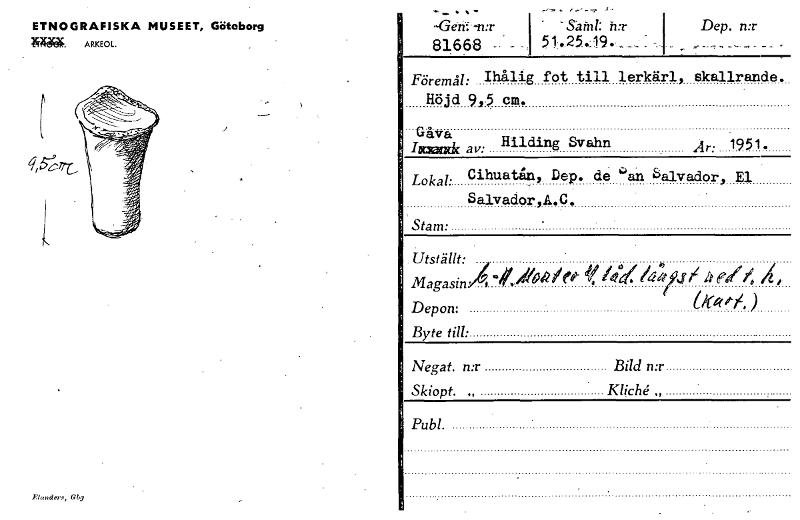 ETNOGRAFISKA MUSEET, Göteborg
ARKEOL.
9,5cm
Elanders, Gbg
Gen: n:r
Saml: n:r
Dep. n:r
81668
51.25.19.
Föremål: Ihålig fot till lerkärl, skallrande.
Höjd 9,5 cm.
Gåva
av: Hilding Svahn
År: 1951.
Lokal: Cihuatán, Dep. de San Salvador, El
Salvador,A.C.
Stam:
Utställt:
Magasin: C.-A. Monter låd. längst ned t. h.
(Kart.)
Depon:
Byte till:
Negat. n:r
Bild n:r
Skiopt. „
Kliché „
Publ.